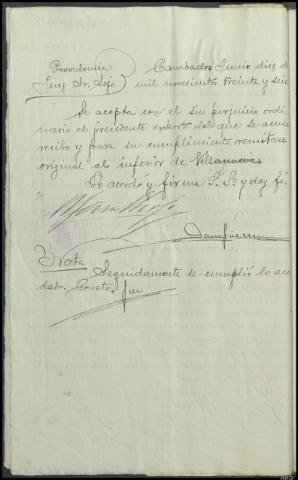 Providencia
Juez Sr. Rojo
Cambados Junio diez de
mil novecientos treinta y seis
Se acepta con el sin perjuicio ordi-
nario el precedente exhorto del que se acuse
recibo y para su cumplimiento remitase
original al inferior de Villanueva.
Lo acordó y firma S. Sª y doy fé.
Nota
Seguidamente se cumplió lo acor
dado. Consta, fé